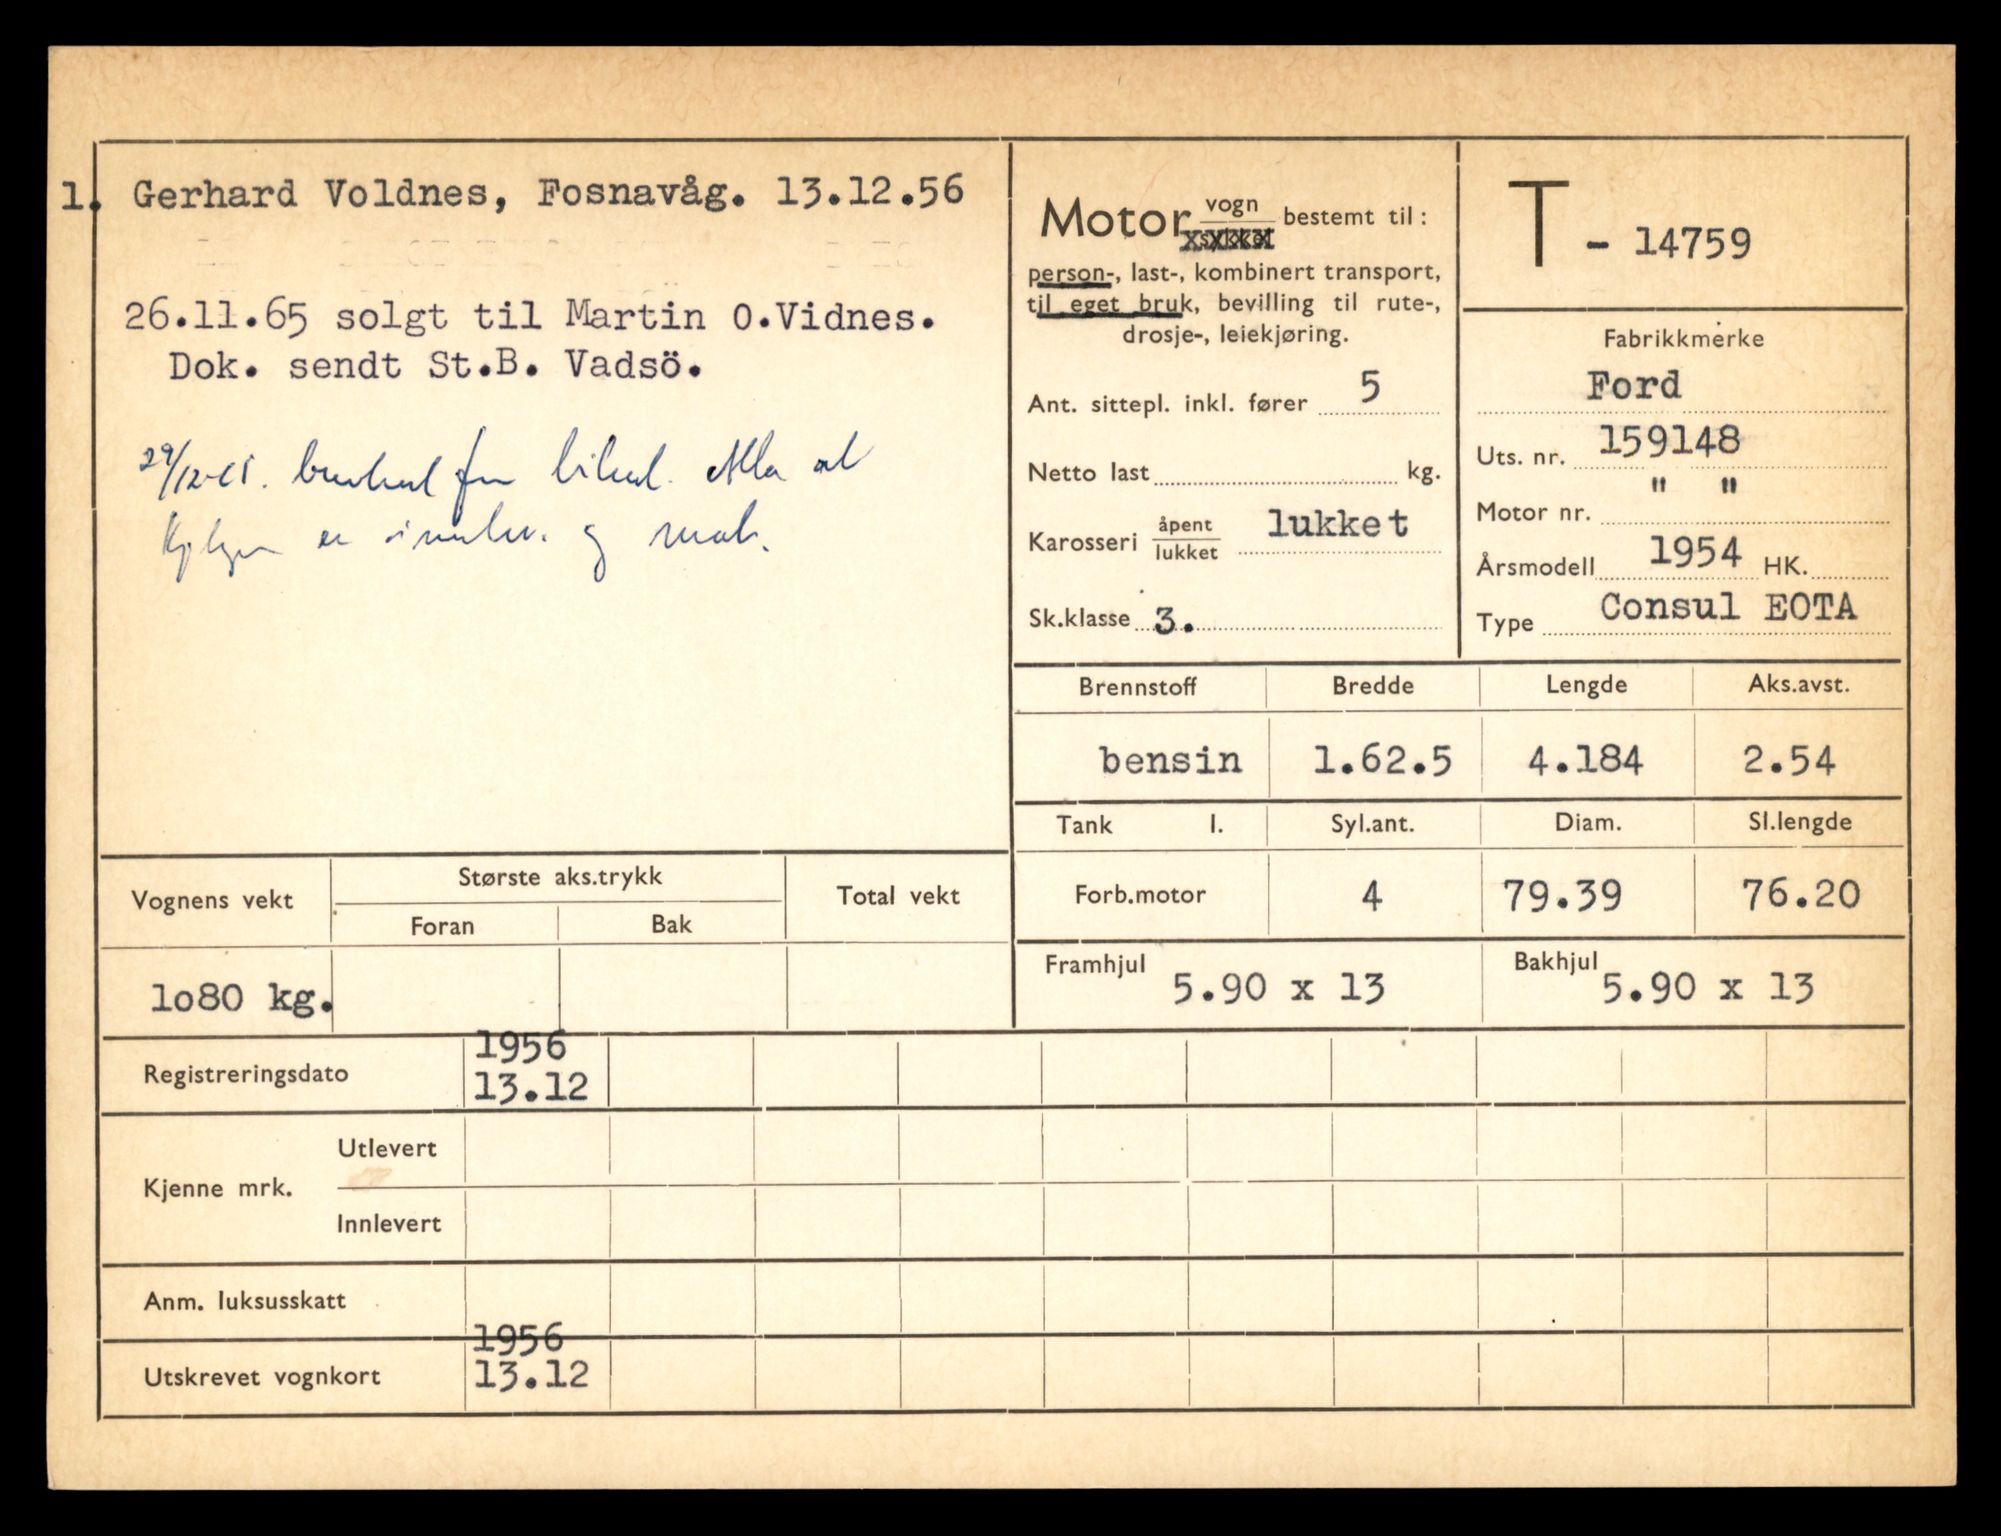 1. Gerhard Voldnes, Fosnavåg. 13.12.56
26.11.65 solgt til Martin O.Vidnes.
Dok. sendt St.B. Vadsö.
og
Motor vogn bestemt til:
person-, last-, kombinert transport,
til eget bruk, bevilling til rute-,
drosje-, leiekjøring.
Ant. sittepl. inkl. fører 5
Netto last kg.
Karosseri åpent lukket lukket
Sk.klasse 3.
T - 14759
Fabrikkmerke
Ford
Uts. nr. 159148
" "
Motor nr.
Årsmodell 1954 HK.
Type Consul EOTA
Brennstoff Bredde Lengde Aks.avst.
bensin 1.62.5 4.184 2.54
Tank l. Syl.ant. Diam. Sl.lengde
Forb.motor 4 79.39 76.20
Framhjul 5.90 x 13 Bakhjul 5.90 x 13
Vognens vekt Største aks.trykk Total vekt
Foran Bak
1o80 kg.
1956
Registreringsdato 13.12
Kjenne mrk. Utlevert
Innlevert
Anm. luksusskatt
1956
Utskrevet vognkort 13.12